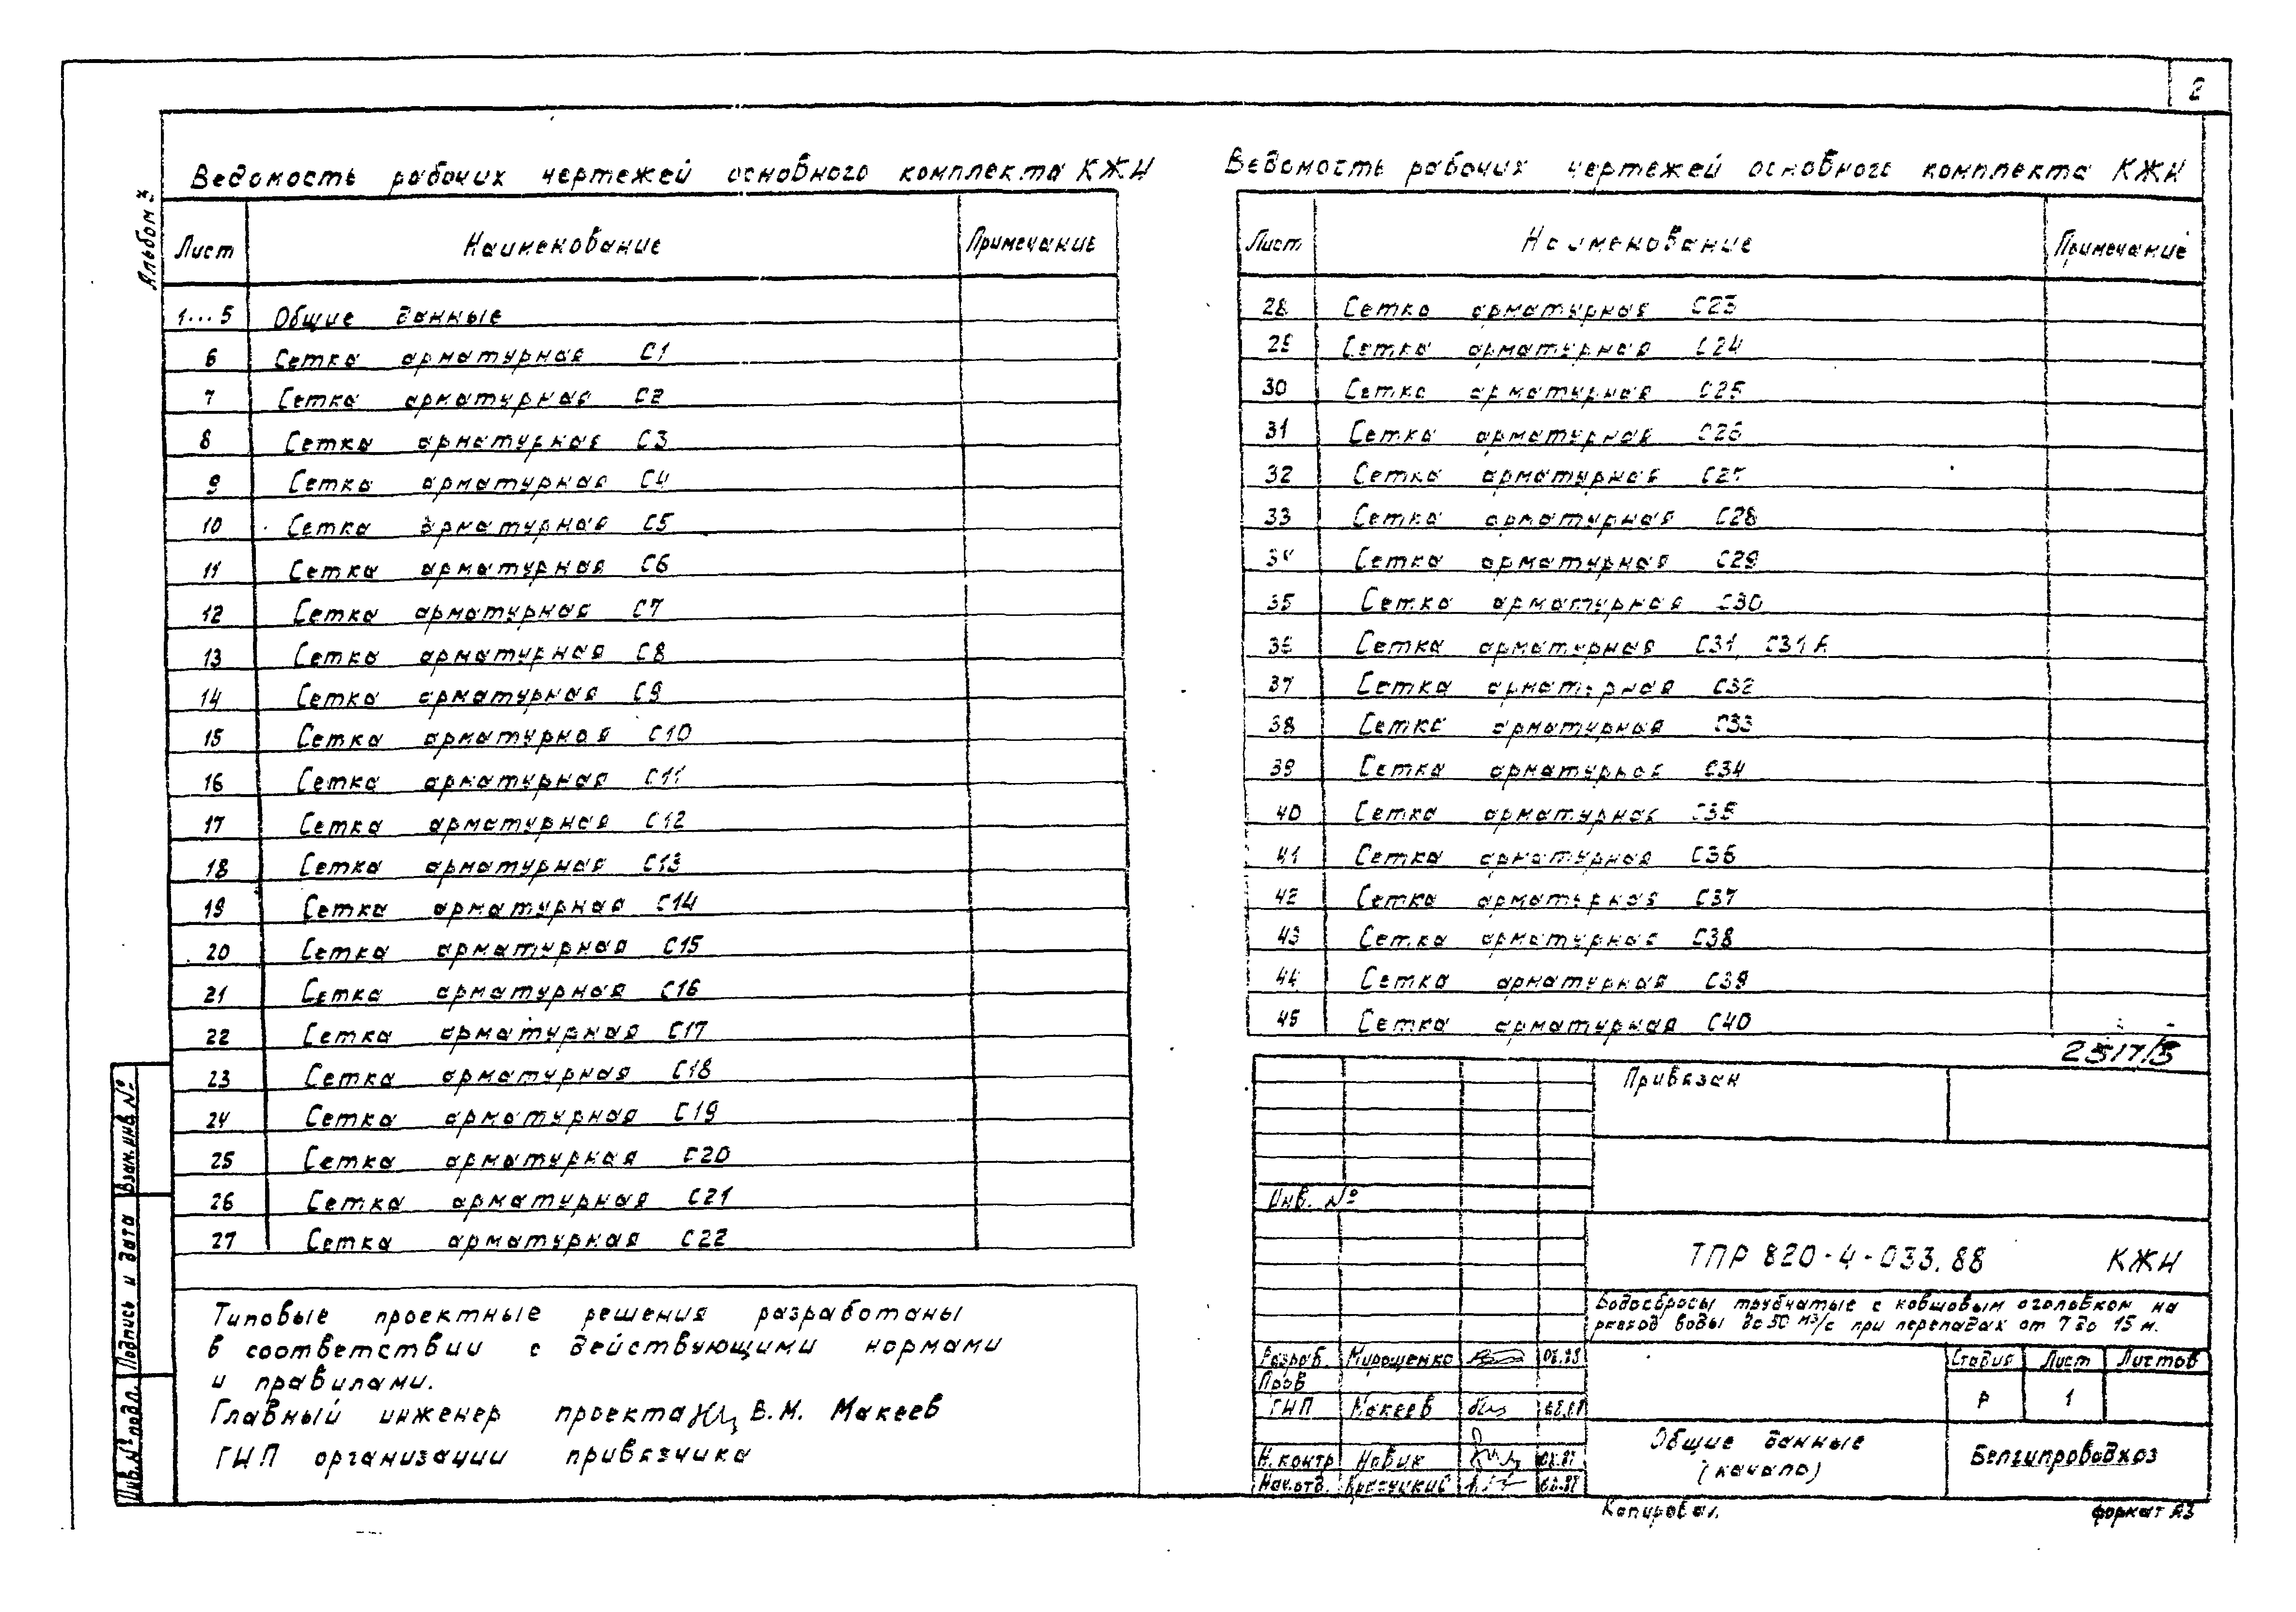 2
Альбом
Ведомость рабочих чертежей основного комплекта КЖИ
Лист Наименование Примечание
1...5 Общие данные
6 Сетка арматурная С1
7 Сетка арматурная С2
8 Сетка арматурная С3
9 Сетка арматурная С4
10 Сетка арматурная С5
11 Сетка арматурная С6
12 Сетка арматурная С7
13 Сетка арматурная С8
14 Сетка арматурная С9
15 Сетка арматурная С10
16 Сетка арматурная С11
17 Сетка арматурная С12
18 Сетка арматурная С13
19 Сетка арматурная С14
20 Сетка арматурная С15
21 Сетка арматурная С16
22 Сетка арматурная С17
23 Сетка арматурная С18
24 Сетка арматурная С19
25 Сетка арматурная С20
26 Сетка арматурная С21
27 Сетка арматурная С22
Типовые проектные решения разработаны
в соответствии с действующими нормами
и правилами.
Главный инженер проекта В.М. Макеев
ГИП организации привязчика
Ведомость рабочих чертежей основного комплекта КЖИ
Лист Наименование Примечание
28 Сетка арматурная С23
29 Сетка арматурная С24
30 Сетка арматурная С25
31 Сетка арматурная С26
32 Сетка арматурная С27
33 Сетка арматурная С28
34 Сетка арматурная С29
35 Сетка арматурная С30
36 Сетка арматурная С31,
37 Сетка арматурная С32
38 Сетка арматурная С33
39 Сетка арматурная С34
40 Сетка арматурная С35
41 Сетка арматурная С36
42 Сетка арматурная С37
43 Сетка арматурная С38
44 Сетка арматурная С39
45 Сетка арматурная С40
2517/5
Привязан
Инв. №
ТПР 820-4-033.88 КЖИ
Водосбросы трубчатые с ковшовым оголовком на
расход воды до 50 м³/с при перепадах от 7 до 15 м.
Разраб. Мирошенко
Пров
ГИП Макеев
Н.контр Новик
Нач.отд.
Стадия Лист Листов
Р 1
Общие данные
(начало)
Белгипроводхоз
Копировал
формат А3
Взам.инв №
Подпись и дата
Инв.№ подл.